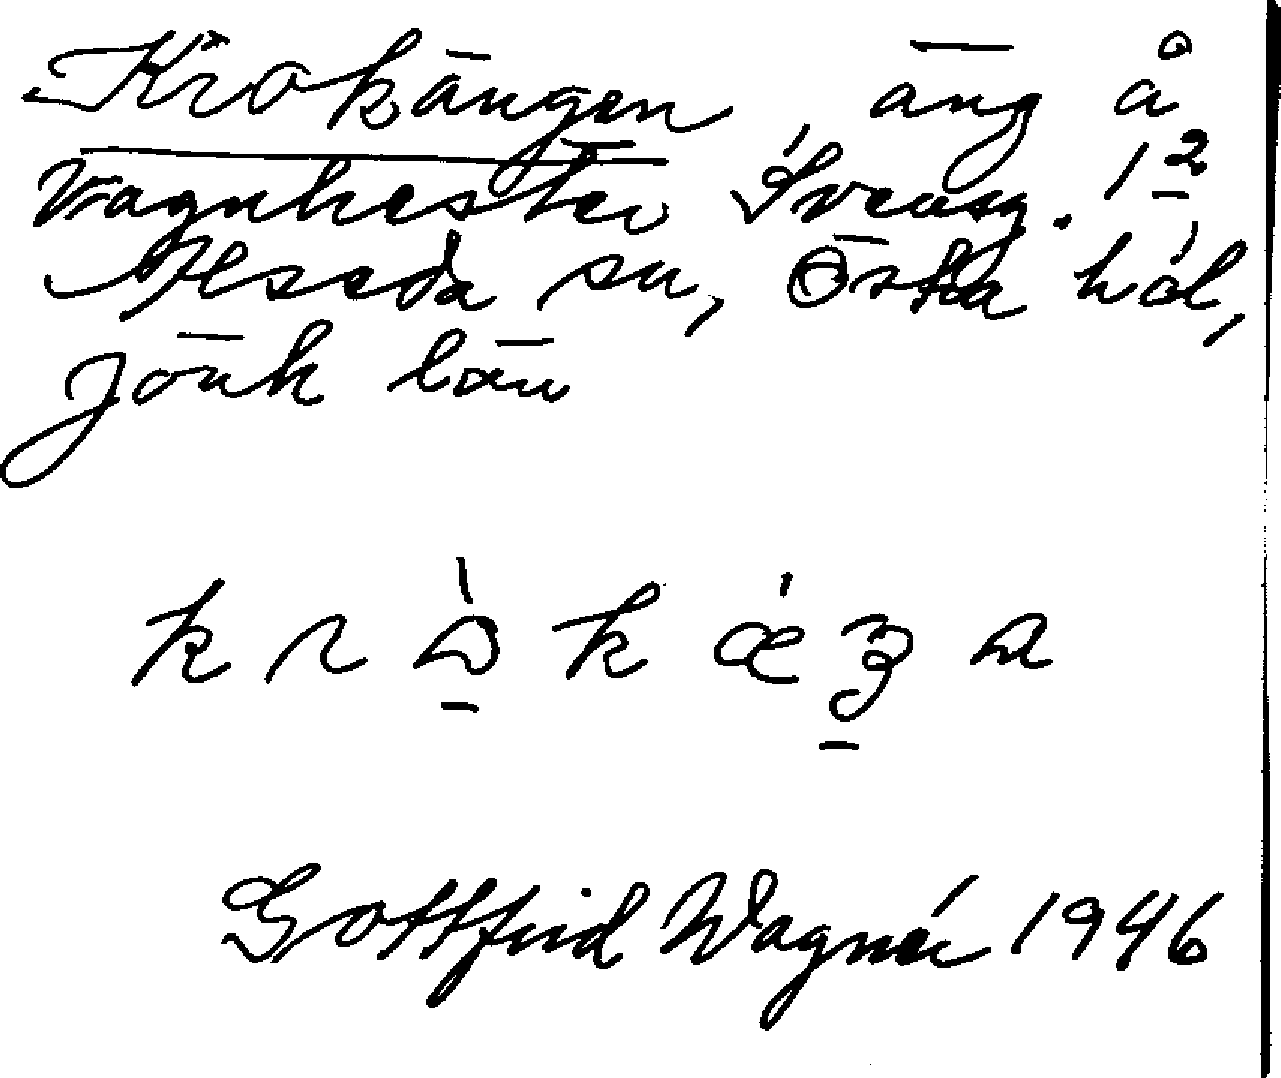 Krokängen, äng å
Vagnhester Sveasg. 1 2
Alseda sn, Östra hd,
Jönk län
k r ɔ̀ k ǽ ʒ a
Gottfrid Wagnér 1946